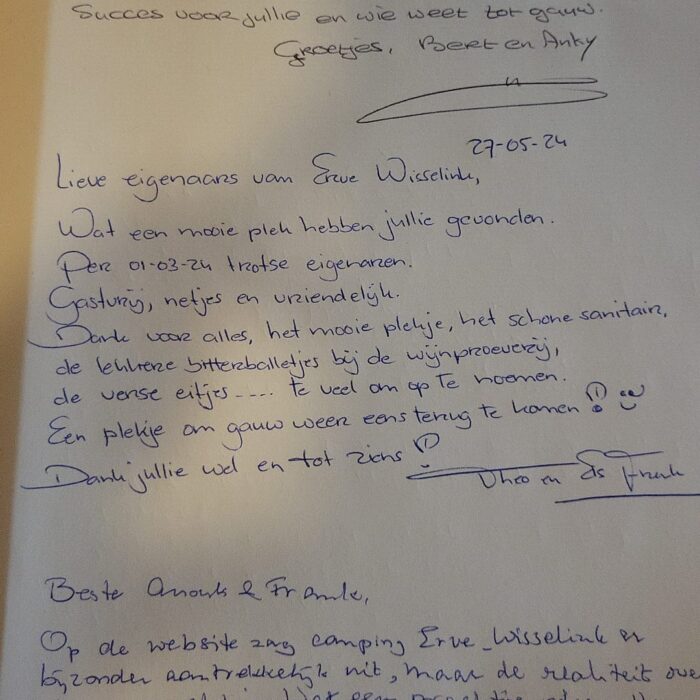 Succes voor jullie en wie weet tot gauw.
Groetjes, Bert en Anky
27-05-24
Lieve eigenaars van Erve Wisselink,
Wat een mooie plek hebben jullie gevonden.
Per 01-03-24 trotse eigenaren.
Gastvrij, netjes en vriendelijk.
Dank voor alles, het mooie plekje, het schone sanitair,
de lekkere bitterballetjes bij de wijnproeverij,
de verse eitjes .... te veel om op te noemen.
Een plekje om gauw weer eens terug te komen!
Dank jullie wel en tot ziens!
Theo en
Beste Anouk & Frank,
Op de website zag camping Erve Wisselink er
bijzonder aantrekkelijk uit, maar de realiteit